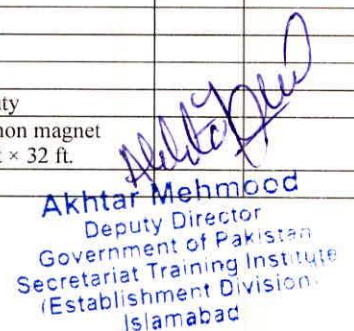 ty
non magnet
× 32 ft.
Akhtar Mehmood
Deputy Director
Government of Pakistan
Secretariat Training Institute
(Establishment Division)
Islamabad